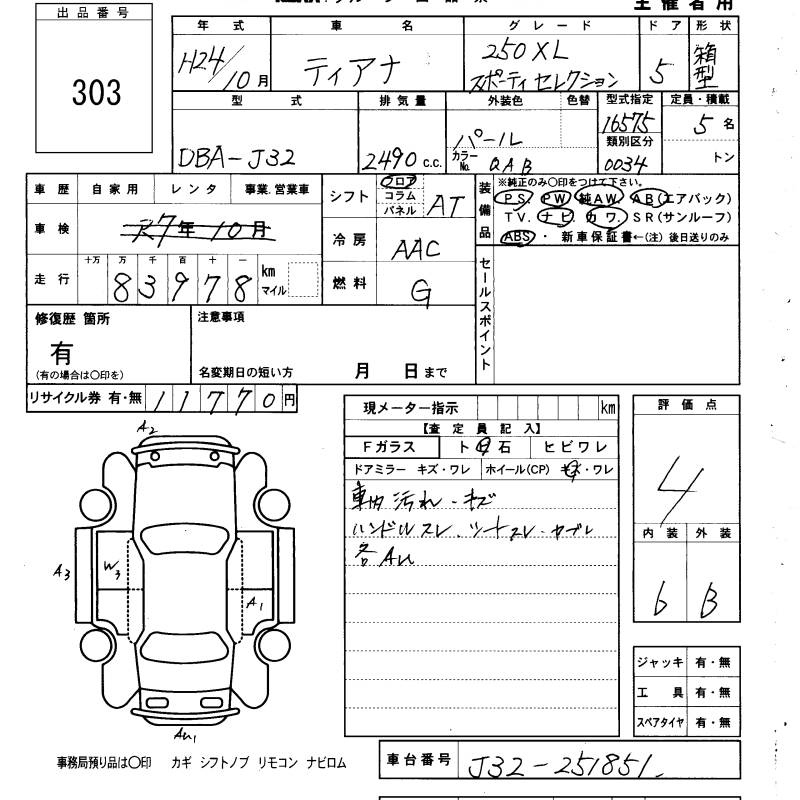 主催者用
出品番号
303
年式 車名 グレード ドア 形状
H24/10月 ティアナ 250XL スポーティセレクション 5 箱型
型式 排気量 外装色 色替 型式指定 定員・積載
DBA-J32 2490 c.c. パール 16575 5名
カラーNo. QAB 類別区分 0034 トン
車歴 自家用 レンタ 事業.営業車
車検 R7年10月
走行 十万 万 千 百 十 一 km マイル
83978
シフト フロア コラム パネル AT
冷房 AAC
燃料 G
装備品 ※純正のみ〇印をつけて下さい。
PS. PW 純AW. AB(エアバック)
TV. ナビ カワ. SR(サンルーフ)
ABS・ 新車保証書←(注) 後日送りのみ
セールスポイント
修復歴 箇所
有
(有の場合は〇印を)
注意事項
名変期日の短い方 月 日まで
リサイクル券 有・無 11770円
現メーター指示 km
【査定員記入】
Fガラス ト 石 ヒビワレ
ドアミラー キズ・ワレ ホイール(CP) キズ・ワレ
車内汚れ・キズ
ハンドルスレ、シートスレ・ヤブレ
各AU
評価点
4
内装 外装
6 B
A2
A3
W3
A1
AU1
ジャッキ 有・無
工具 有・無
スペアタイヤ 有・無
事務局預り品は〇印 カギ シフトノブ リモコン ナビロム
車台番号 J32-251851.